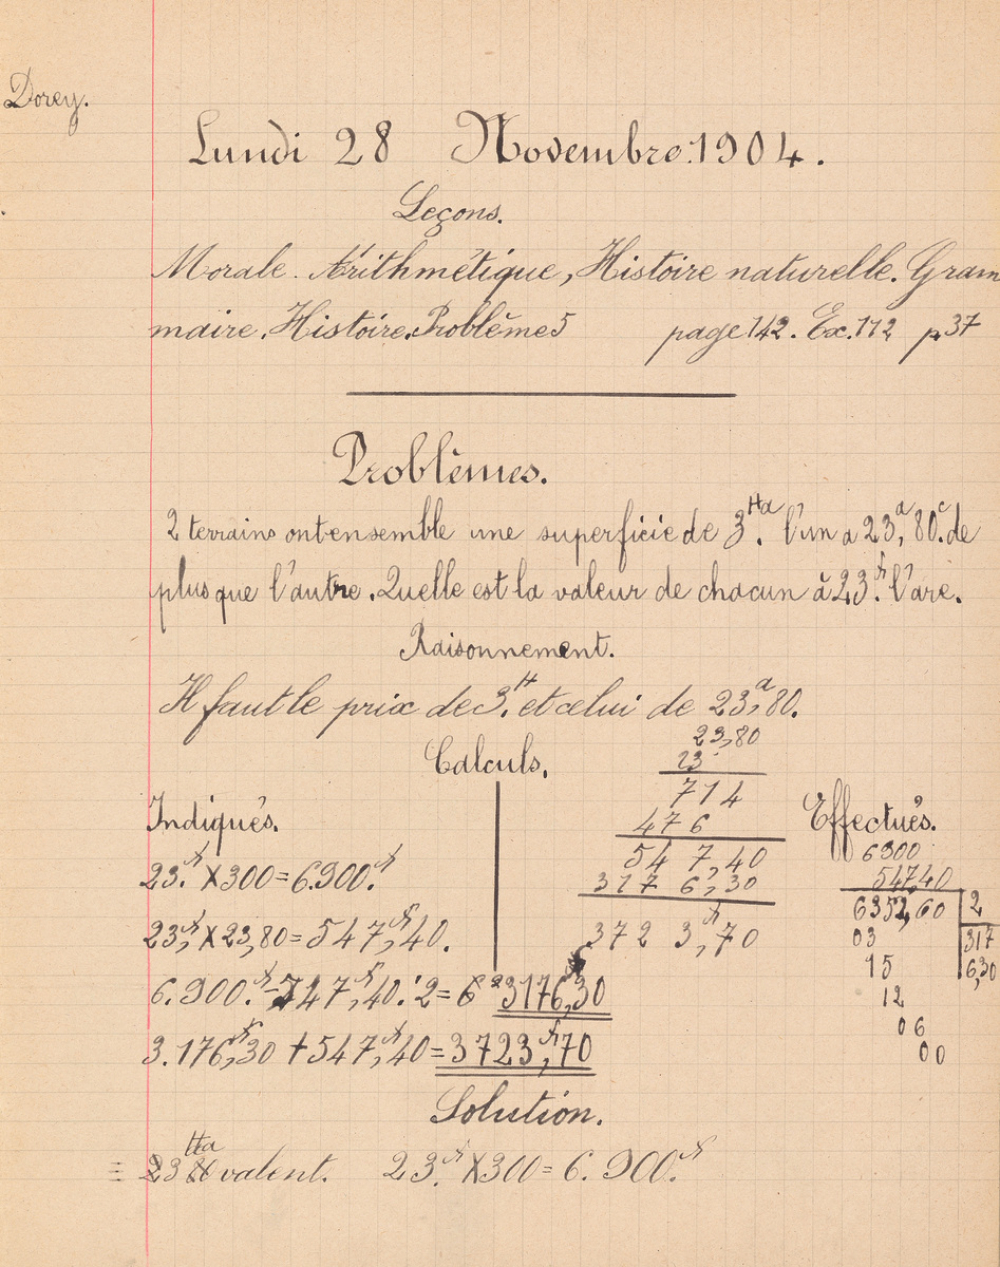 Dorey.
Lundi 28 Novembre.1904.
Leçons.
Morale. Arithmétique, Histoire naturelle. Gram
maire. Histoire. Problème 5 page 142. Ex. 112 p. 37
Problèmes.
2 terrains ont ensemble une superficie de 3Ha. l'un a 23a,80c. de
plus que l'autre. Quelle est la valeur de chacun à 23f. l'are.
Raisonnement.
Il faut le prix de 3H. et celui de 23a,80.
Calculs.
23,80
23
714
476
547,40
3176,30
3723f,70
Indiqués.
23.f X300=6.900.f
23,f X 23,80=547,f40.
6.900.f-547,f40.:2= 3176,30
3.176,f30 + 547,f40=3723f,70
Effectués.
6900
547,40
6352,60 2
03 317
15 6,30
12
06
00
Solution.
3 Ha valent. 23.f X300= 6.900.f